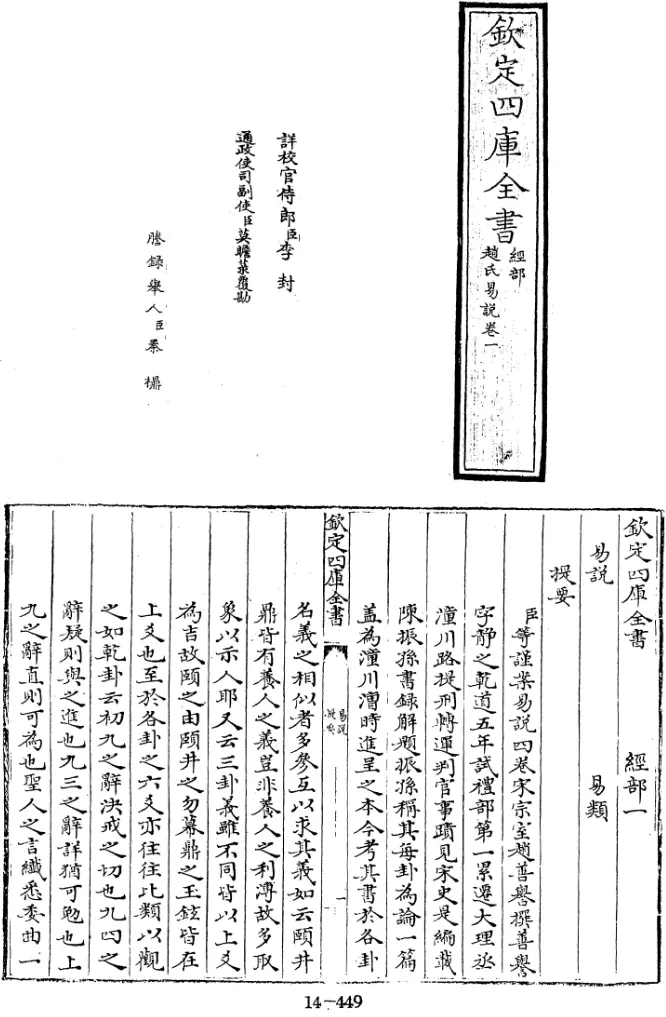 欽定四庫全書
經部
趙氏易説卷一
詳校官侍郎臣李封
通政使司副使臣莫瞻菉覆勘
謄録舉人臣秦
欽定四庫全書 經部一
易説 易類
提要
臣等謹案易説四卷宋宗室趙善譽撰善譽
字静之乾道五年試禮部第一累遷大理丞
潼川路提刑轉運判官事蹟見宋史是編載
陳振孫書録解題振孫稱其每卦為論一篇
蓋為潼川漕時進呈之本今考其書於各卦
欽定四庫全書
易説
提要
一
名義之相似者多參互以求其義如云頤井
鼎皆有養人之義豈非養人之利溥故多取
象以示人耶又云三卦義雖不同皆以上爻
為吉故頤之由頤井之勿幕鼎之玉鉉皆在
上爻也至於各卦之六爻亦往往比類以觀
之如乾卦云初九之辭決戒之切也九四之
辭疑則與之進也九三之辭詳猶可勉也上
九之辭直則可為也聖人之言纖悉委曲一
14-449